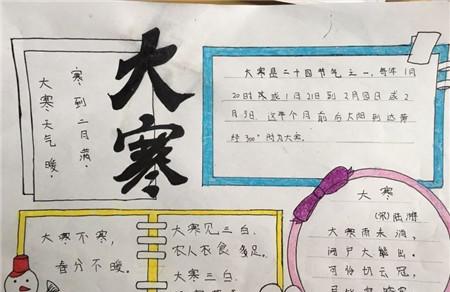 大寒天气暖，
寒到二月满。
大寒
大寒是二十四节气之一。每年1月
20日或1月21日到2月4日或2
月5日 这半个月前后太阳到达黄
经300°时为大寒。
大寒不寒，
春分不暖。
大寒见三白，
农人衣食足。
大寒三白，
大寒
(宋)陆游
大寒雨未消，
闭户不能出。
可怜切云冠，